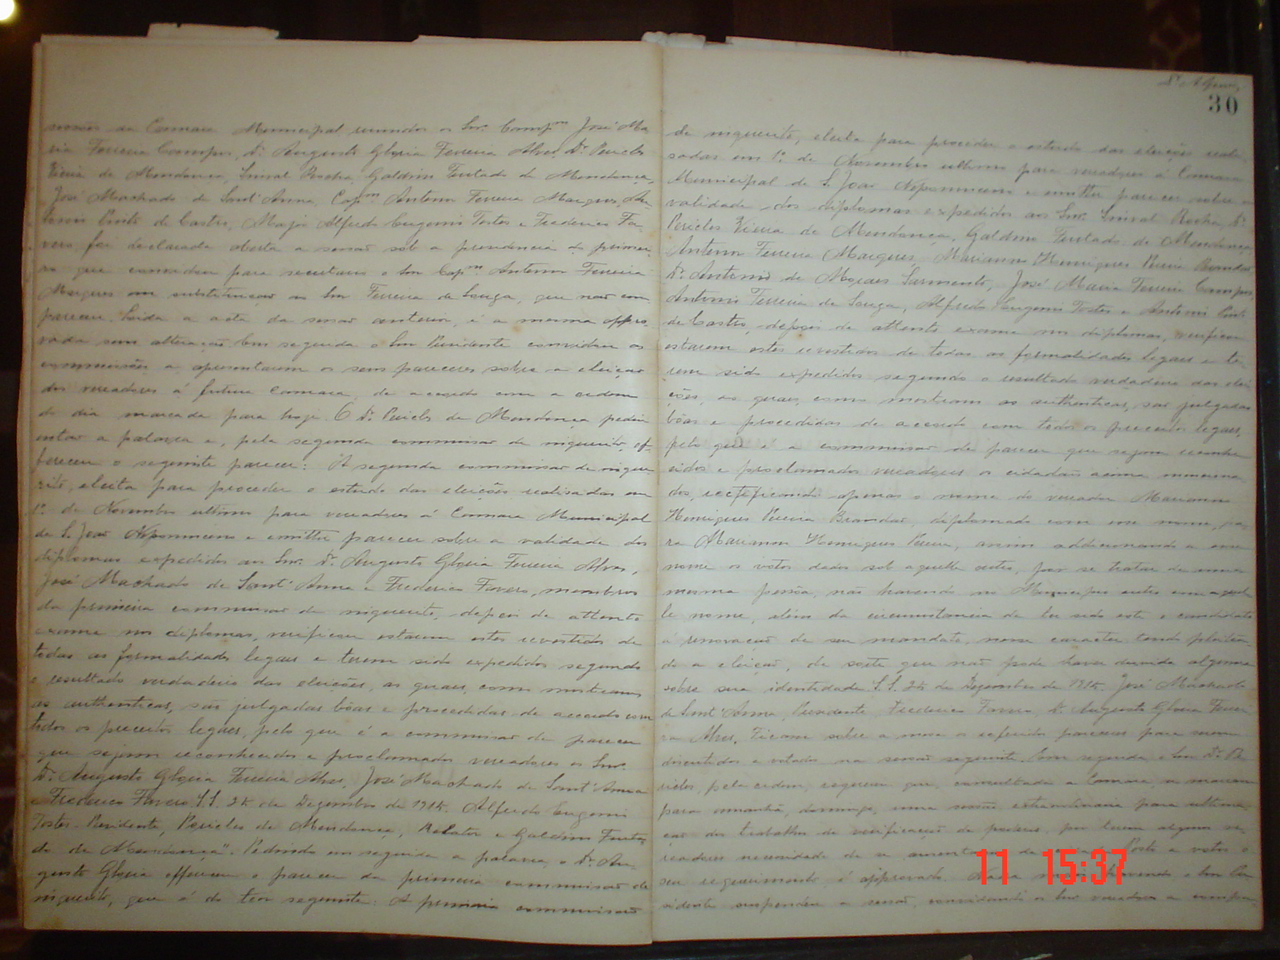 sessões da Camara Municipal reunidos os Snrs. Campm José Ma
ria Ferreira Campos, Dr. Augusto Gloria Ferreira Alves, Dr. Pericles
Vieira de Mendonça, Sinval Rocha, Galdino Furtado de Mendonça,
José Machado de Sant'Anna, Capm Antero Ferreira Marques, An
tonio Pinto de Castro, Major Alfredo Eugenio Tostes e Frederico Fa
vero, foi declarada aberta a sessão sob a presidencia do primei
ro que convidou para secretario o Snr Capm Antero Ferreira
Marques em substituição ao Snr Ferreira de Souza, que não com
pareceu. Lida a acta da sessão anterior, é a mesma appro
vada sem alteração Em seguida o Snr Presidente convidou as
commissões a apresentarem os seus pareceres sobre a eleição
dos vereadores á futura Camara, de accordo com a ordem
do dia marcada para hoje. O Dr. Pericles de Mendonça pediu
então a palavra e, pela segunda commissão de inquerito, of
fereceu o seguinte parecer: "A segunda commissão de inque
rito, eleita para proceder o estudo das eleições realisadas em
1º. de Novembro ultimo para vereadores á Camara Municipal
de S. João Nepomuceno e emittir parecer sobre a validade dos
diplomas expedidos aos Snrs. Dr. Augusto Gloria Ferreira Alves,
José Machado de Sant'Anna e Frederico Favero, membros
da primeira commissão de inquerito, depois de attento
exame nos diplomas, verificou estarem estes revestidos de
todas as formalidades legaes e terem sido expedidos segundo
o resultado verdadeiro das eleições, as quaes, como mostram
as authenticas, são julgadas bôas e procedidas de accordo com
todos os preceitos legaes, pelo que é a commissão de parecer
que sejam reconhecidos e proclamados vereadores os Snrs.
Dr. Augusto Gloria Ferreira Alves, José Machado de Sant'Anna
e Frederico Favero. S.S. 26 de Dezembro de 1915. Alfredo Eugenio
Tostes Presidente, Pericles de Mendonça, Relator e Galdino Furta
do de Mendonça". Pedindo em seguida a palavra o Dr. Au
gusto Gloria offereceu o parecer da primeira commissão de
inquerito, que é do teor seguinte: A primeira commissão
30
de inquerito, eleita para proceder o estudo das eleições reali
sadas em 1º. de Novembro ultimo para vereadores á Camara
Municipal de S. João Nepomuceno e emittir parecer sobre a
validade dos diplomas expedidos aos Snrs. Sinval Rocha, Dr.
Pericles Vieira de Mendonça, Galdino Furtado de Mendonça,
Antero Ferreira Marques, Marianno Henriques Pereira Brandão
Dr. Antonio de Moraes Sarmento, José Maria Ferreira Campos,
Antonio Ferreira de Souza, Alfredo Eugenio Tostes e Antonio Pinto
de Castro, depois de attento exame nos diplomas, verificou
estarem estes revestidos de todas as formalidades legaes e te
rem sido expedidos segundo o resultado verdadeiro das elei
ções, as quaes, como mostram as authenticas, são julgadas
bôas e procedidas de accordo com todos os preceitos legaes,
pelo que é a commissão de parecer que sejam reconhe
cidos e proclamados vereadores os cidadãos acima menciona
dos, rectificando apenas o nome do vereador Marianno
Henriques Pereira Brandão, diplomado com esse nome, pa
ra Marianno Henriques Pereira, assim addicionando a esse
nome os votos dados sob aquelle outro, por se tratar de uma
mesma pessôa, não havendo no Municipio outro com aquel
le nome, alem da circumstancia de ter sido este o candidato
á renovação de seu mandato, nesse caracter tendo pleitea
do a eleição, de sorte que não póde haver duvida alguma
sobre sua identidade. S.S. 26 de Dezembro de 1915. José Machado
de Sant'Anna, Presidente, Frederico Favero, Dr. Augusto Gloria Ferrei
ra Alves. Ficaram sobre a mesa os referidos pareceres para serem
discutidos e votados na sessão seguinte. Em seguida o Snr Dr. Pe
ricles, pela ordem, requereu que, consultada a Camara, se marcasse
para amanhã, domingo, uma sessão extraordinaria para ultima
ção dos trabalhos de verificação de poderes, por terem alguns ve
readores necessidade de se ausentarem Posto a votos o
seu requerimento é approvado. Nada mais havendo o Snr Pre
sidente suspendeu a sessão, convidando os Snrs vereadores a compa
11 15:37